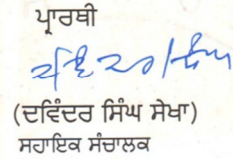 ਪ੍ਰਾਰਥੀ
(ਦਵਿੰਦਰ ਸਿੰਘ ਸੇਖਾ)
ਸਹਾਇਕ ਸੰਚਾਲਕ